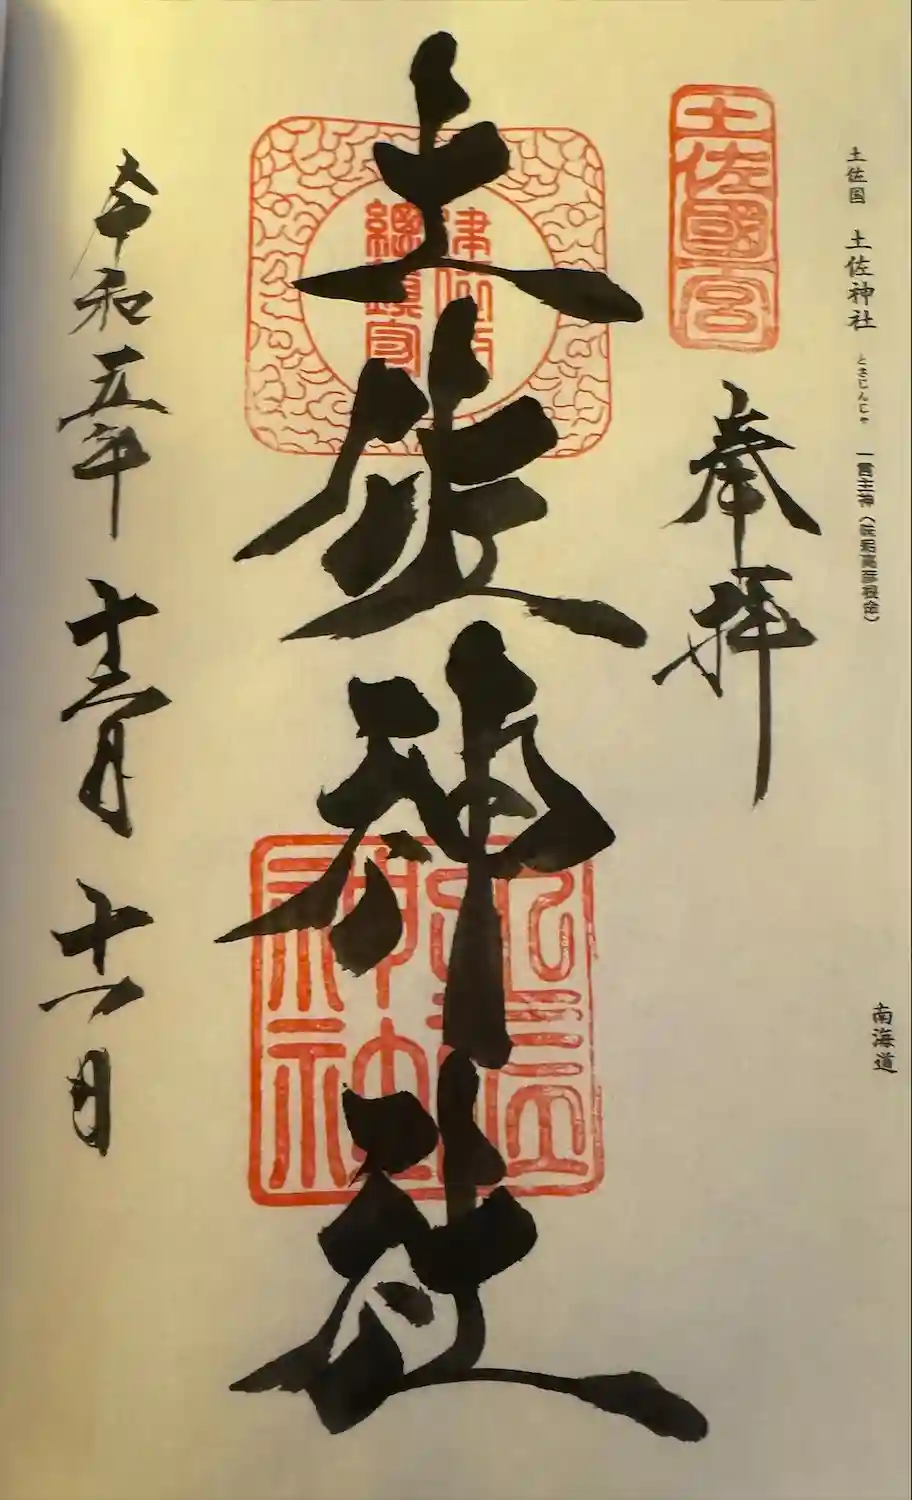 土佐国 土佐神社 とさじんじゃ 一言主神〈味耜高彦根命〉
南海道
土佐國一宮
奉拝
土佐神社
總鎮守
令和五年 十二月 十一日